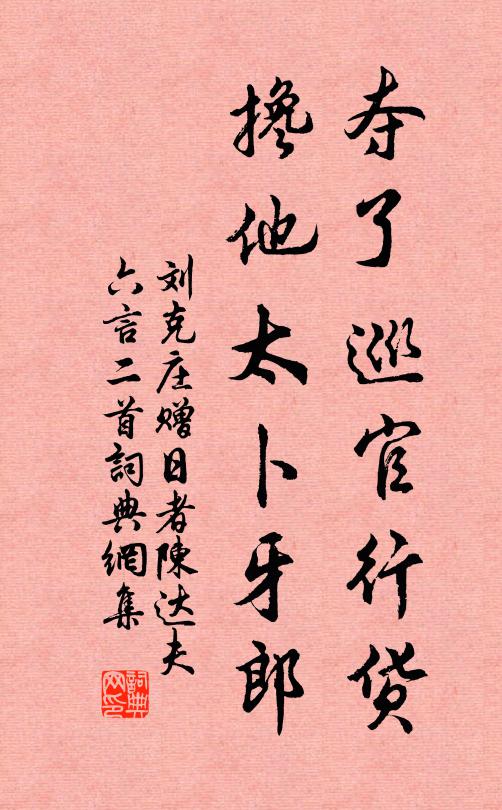 夺了巡官行货
搀他太卜牙郎
刘克庄赠日者陳达夫
六言二首詞典網集
詞典网印